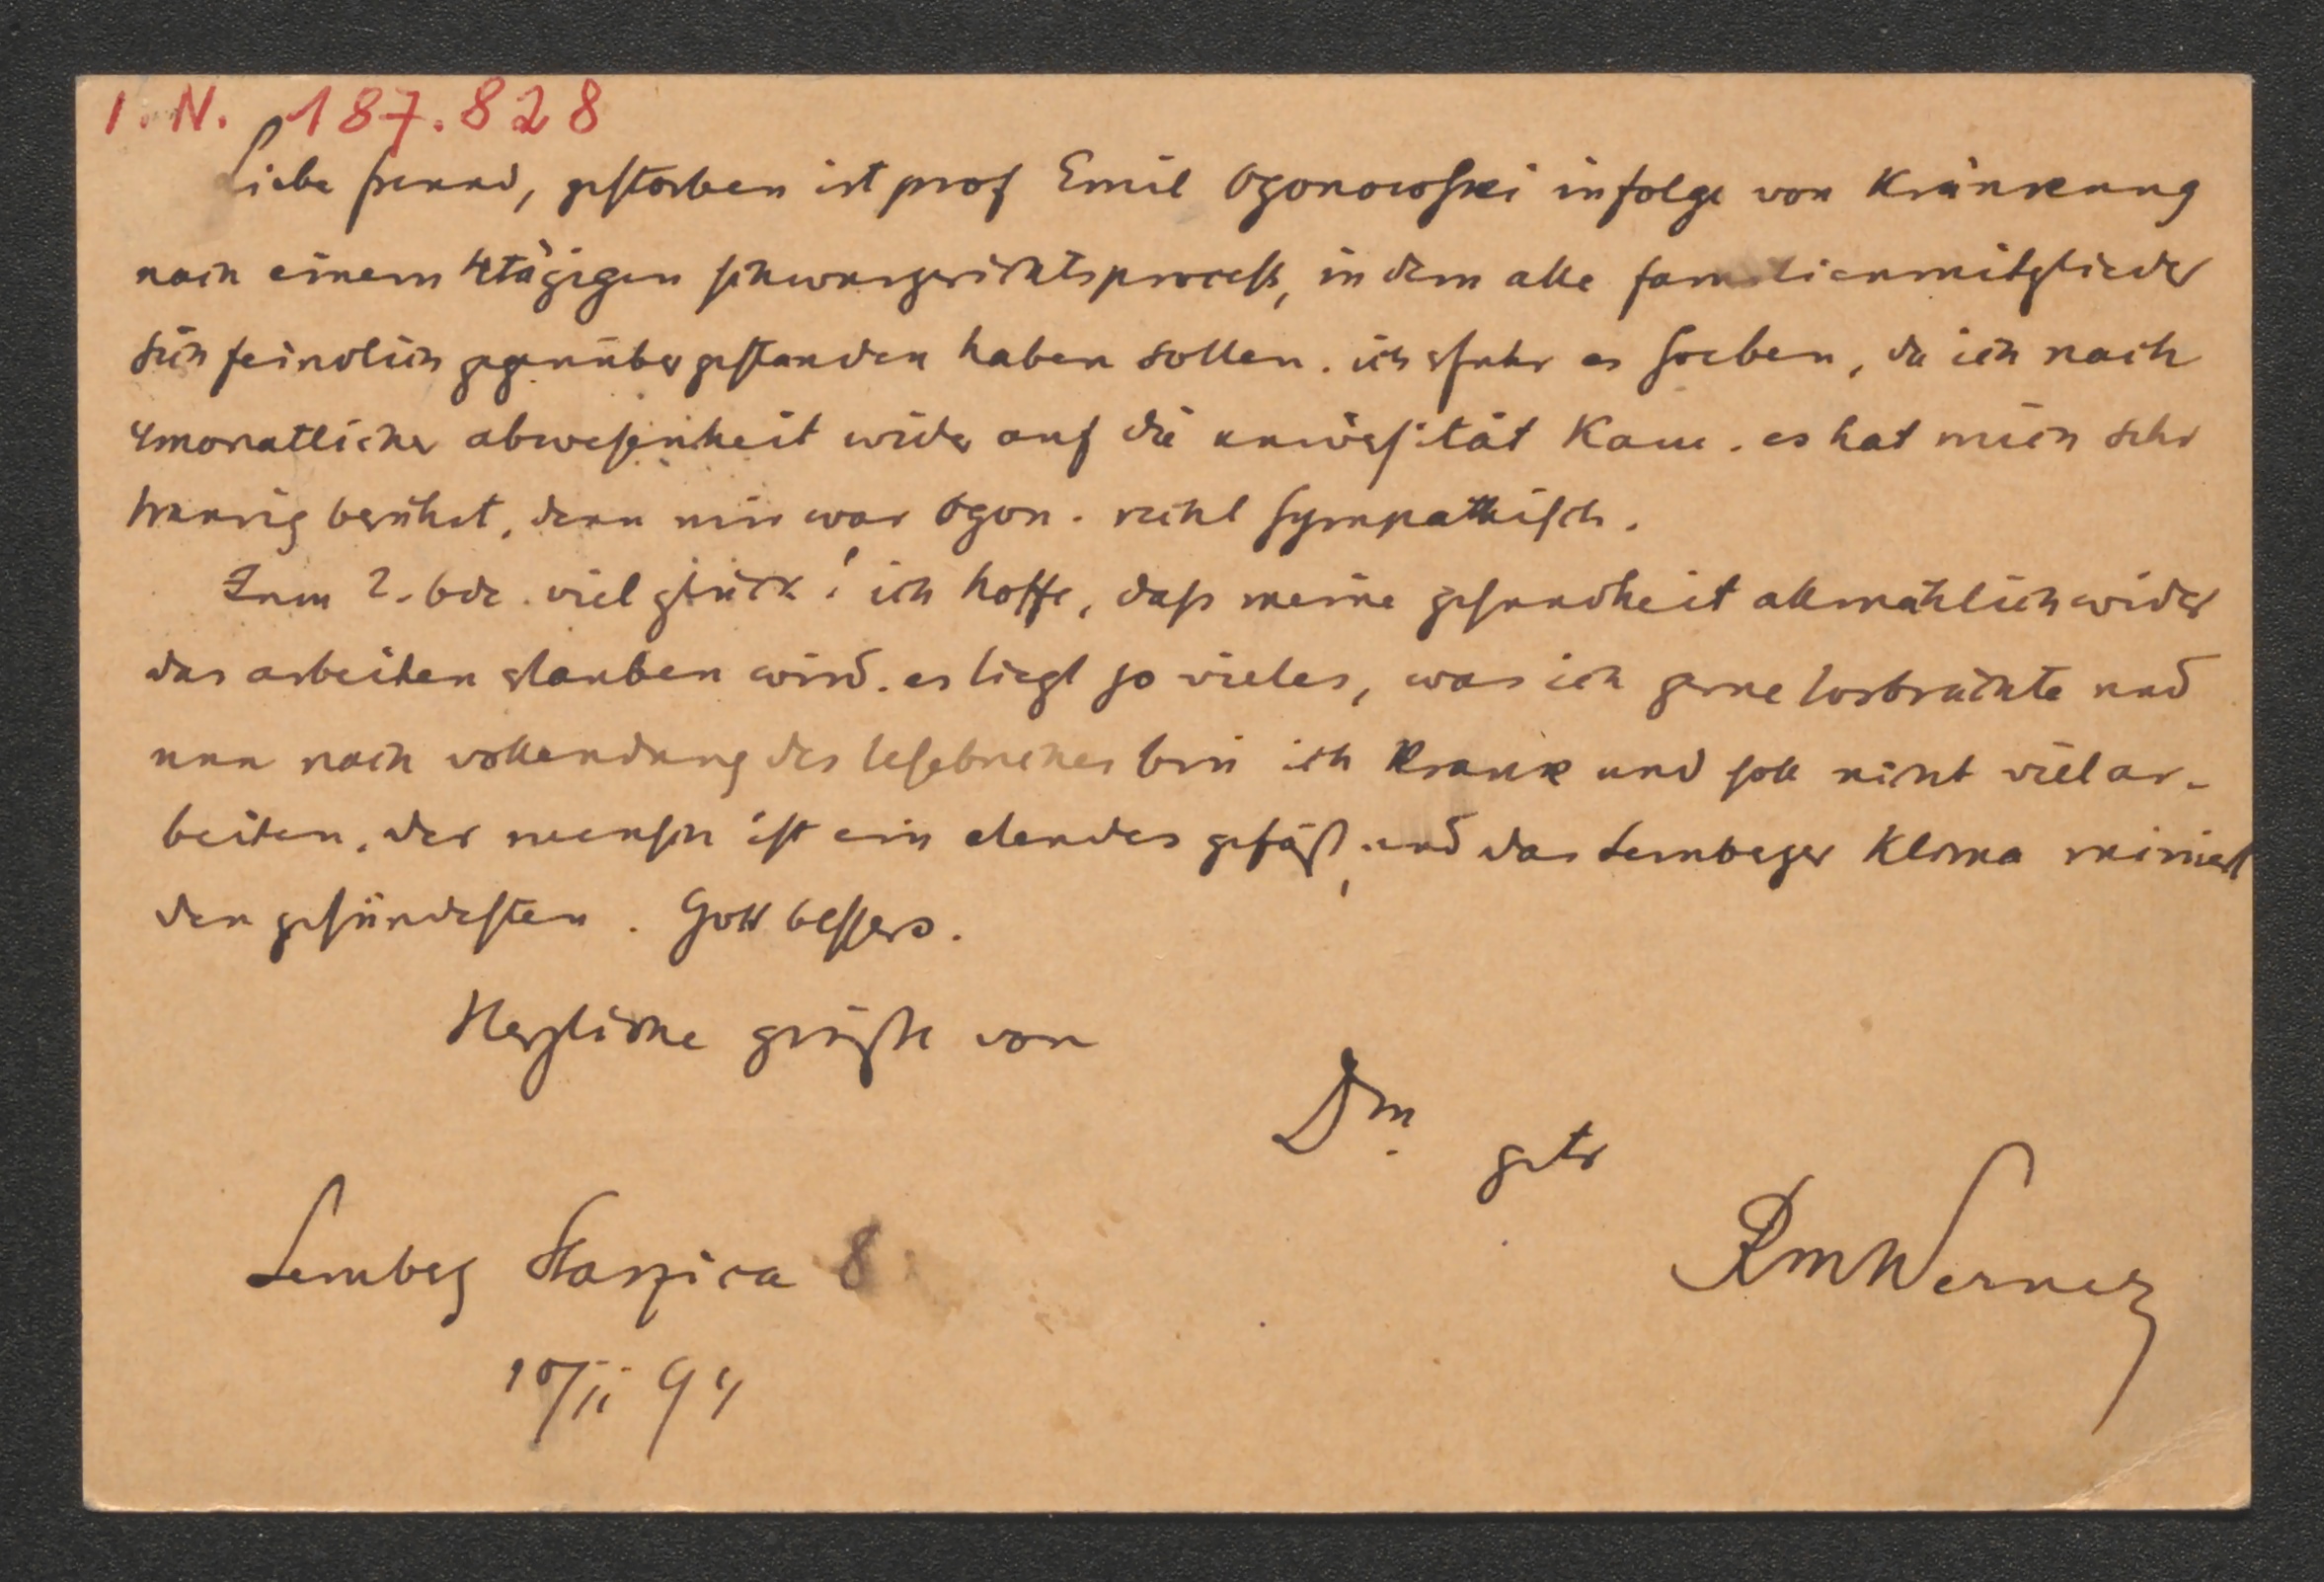 I. N. 187.828
Liebe freund, gestorben ist prof Emil Ogonowski infolge von Kränkung
nach einem 4tägigen schwurgerichtsprocess, in dem alle familienmitglieder
sich feindlich gegenüber gestanden haben sollen. ich erfuhr es soeben, da ich nach
4monatlicher abwesenheit wider auf die universität kam. es hat mich sehr
traurig berührt, denn mir war Ogon. recht sympathisch.
Zum 2. bde. viel glück! ich hoffe, dass meine gesundheit allmählich wider
das arbeiten erlauben wird. es liegt so vieles, was ich gerne losbrächte und
nun nach vollendung des lesebuches bin ich krank und soll nicht viel ar-
beiten. der mensch ist ein elendes gefäß, und das Lemberger Klima ruiniert
den gesündesten. Gott bessers.
Herzliche grüße von
Dm.
getr
Lemberg Staszica 8
RMWerner
10/11 94